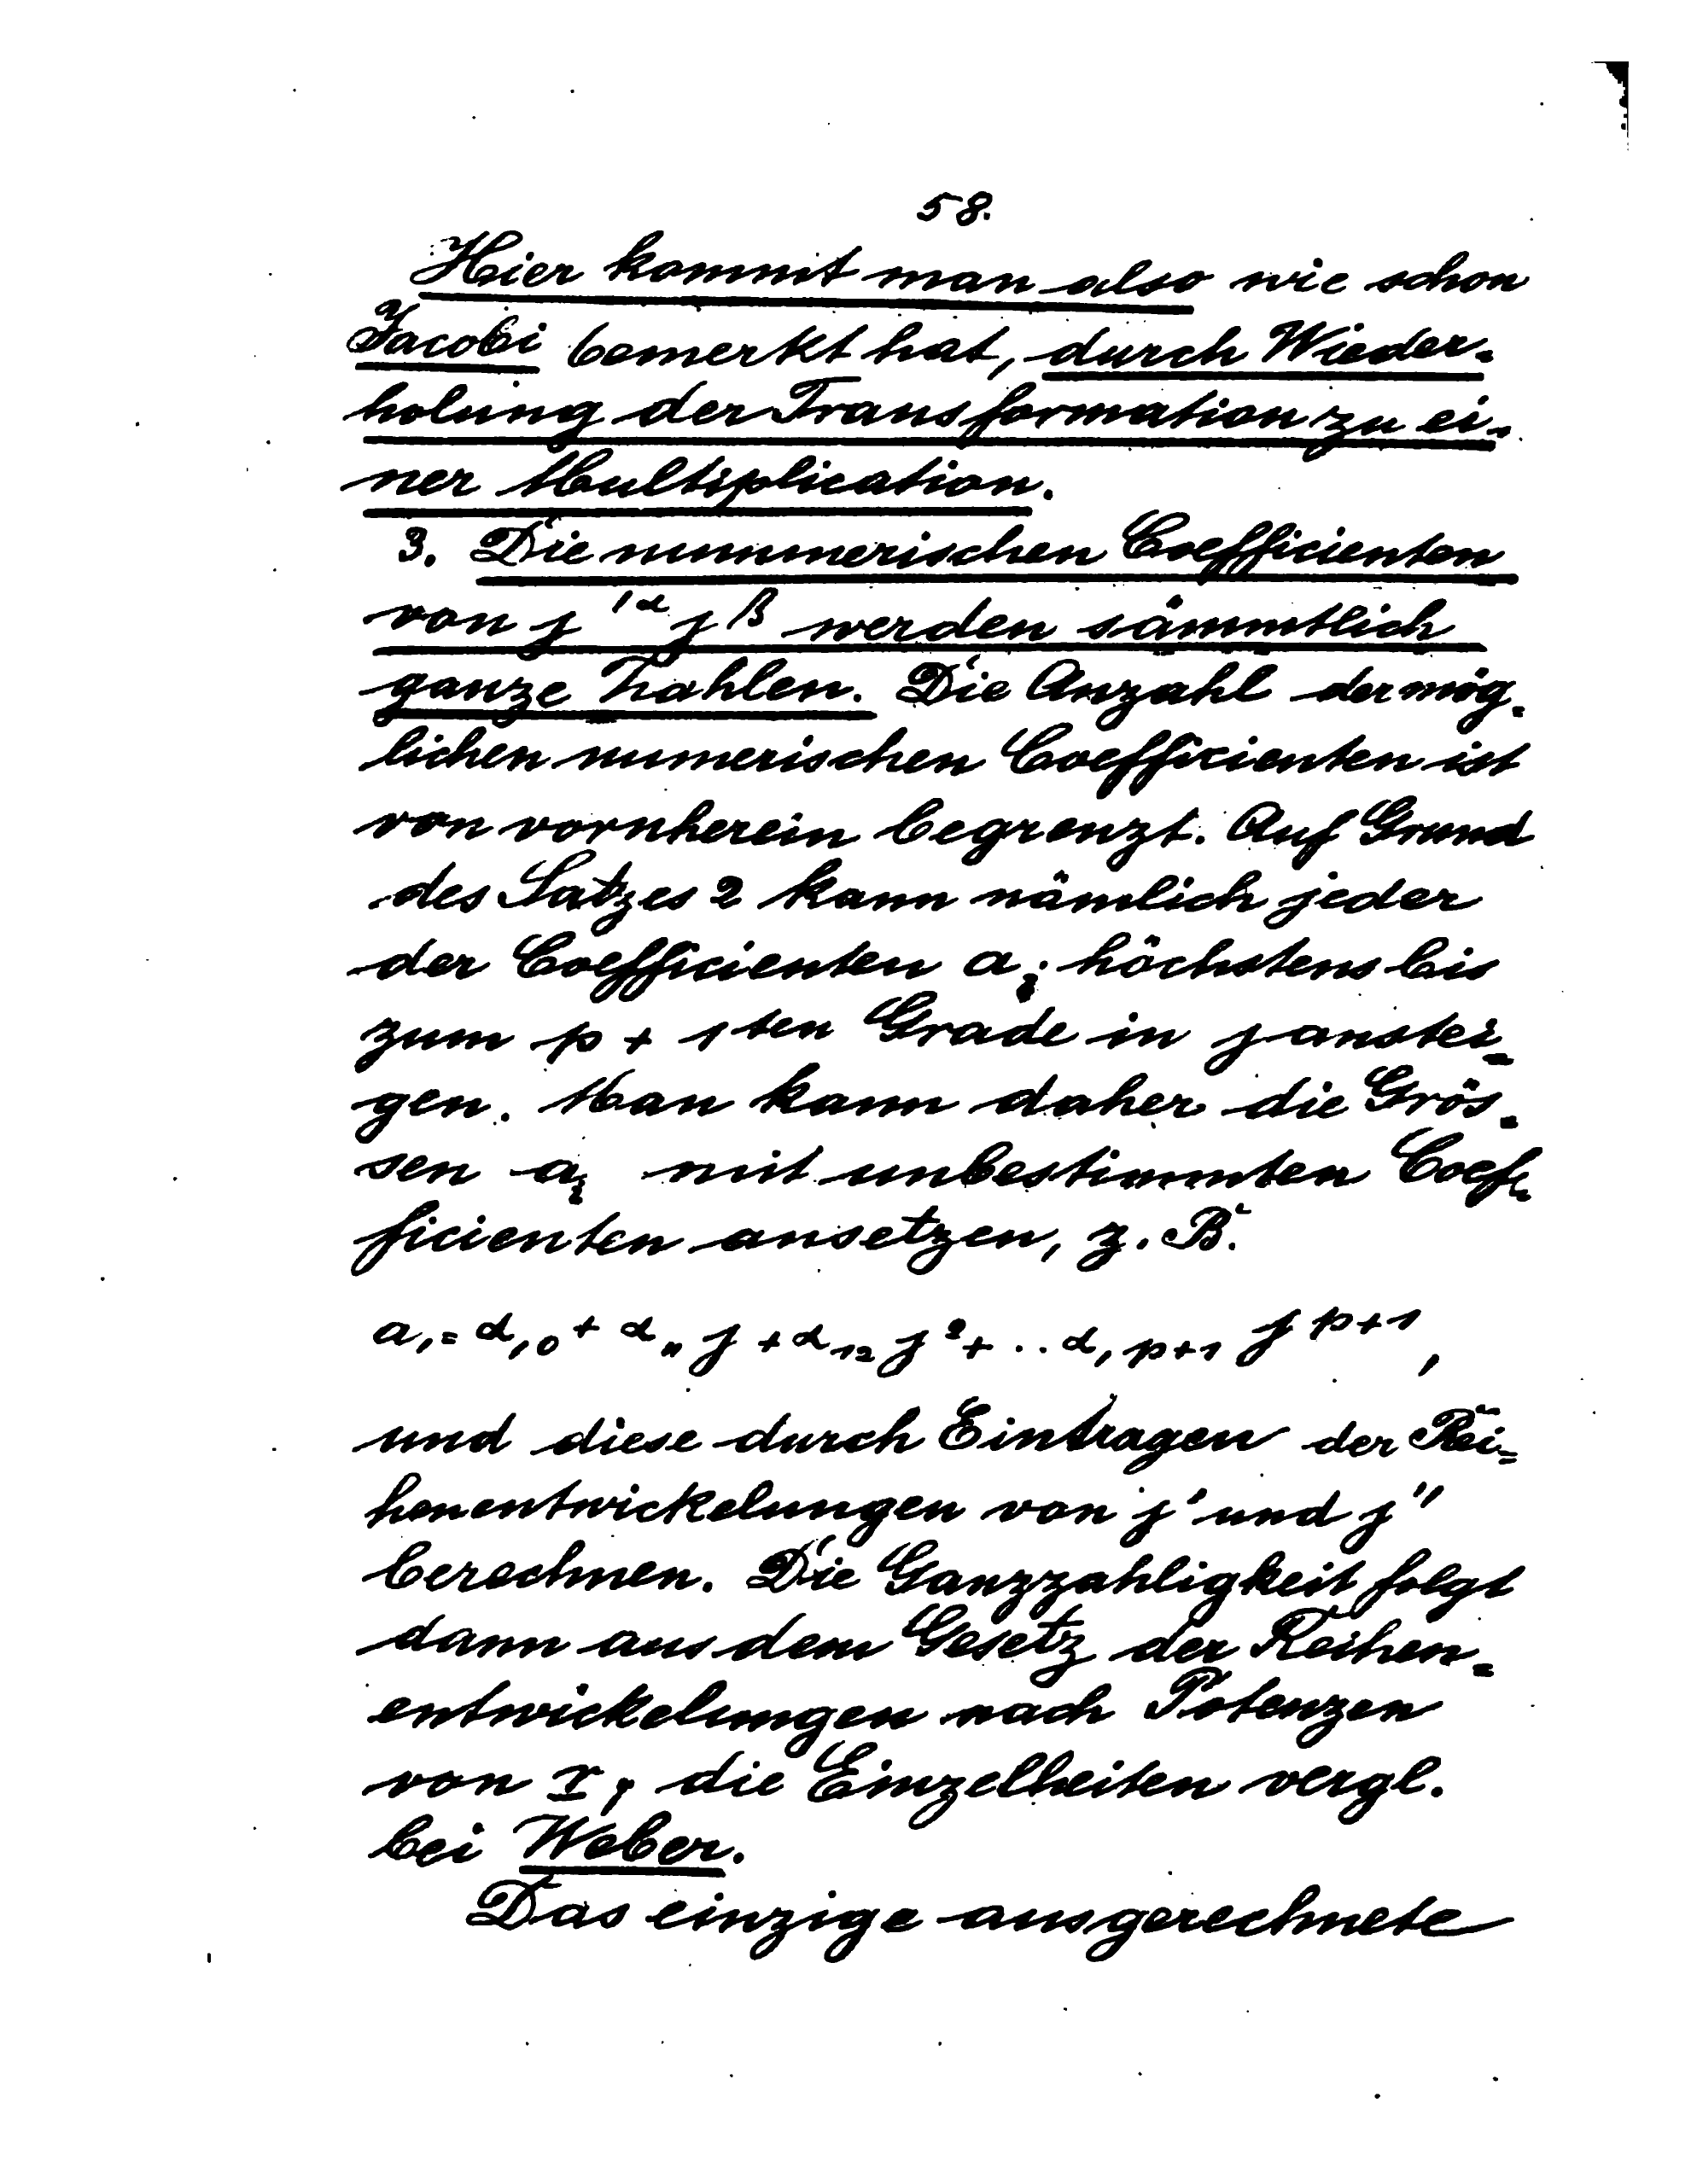 58.
Hier kommt man also wie schon
Jacobi bemerkt hat, durch Wieder-
holung der Transformation zu ei-
ner Multiplication.
3. Die nummerischen Coefficienten
von j'^α j^β werden sämmtlich
ganze Zahlen. Die Anzahl der mög-
lichen numerischen Coefficienten ist
von vornherein begrenzt. Auf Grund
des Satzes 2 kann nämlich jeder
der Coefficienten a_i höchstens bis
zum p + 1ten Grade in j anstei-
gen. Man kann daher die Grös-
sen a_i mit unbestimmten Coef-
ficienten ansetzen, z. B.
a₁ = α₁₀ + α₁₁ j + α₁₂ j² + .. α₁,p+1 j^{p+1},
und diese durch Eintragen der Rei=
henentwickelungen von j' und j''
berechnen. Die Ganzzahligkeit folgt
dann aus dem Gesetz der Reihen=
entwickelungen nach Potenzen
von r; die Einzelheiten vergl.
bei Weber.
Das einzige ausgerechnete